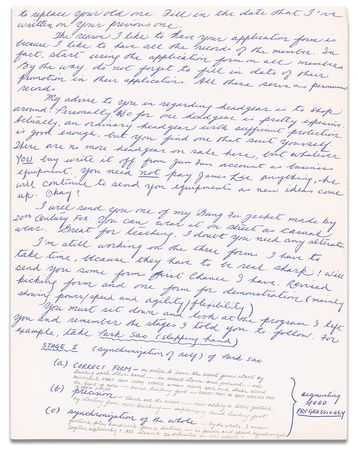 to replace your old one. Fill in the date that I've
written on your previous one.
The reason I like to have your application form is
because I like to have all the records of the member. In
fact, start using the application form on all members.
By the way, do not forget to fill in date of their
promotion in their applications. All these serve as permanent
record.
My advise to you in regarding headgear is to shop
around! Personally $40 for one headgear is pretty expensive.
Actually, an ordinary headgear with sufficient protection
is good enough, but you find one that suit yourself.
There are no more headgear on sale here, but whatever
YOU buy write it off from Jun Fan account as business
equipment. You need not pay James Lee anything. He
will continue to send you equipments as new ideas come
up. Okay!
I will send you one of my Gung Fu jacket made by
20th Century Fox. You can wear it on street as casual
wear. Great for teaching. I doubt you need any alteration.
I'm still working on the three forms. I have to
take time, because they have to be real sharp! Will
send you some form first chance I have. Revised
kicking form and one form for demonstration (mainly
showing power/speed and agility/flexibility)
You must sit down and look at the program I left
you and remember the stages I told you to follow. For
example, take Park Sao (slapping hand)
STAGE I (synchronization of self) of Park Sao
(a) CORRECT FORM
(b) precision
(c) synchronization of the whole
augmenting
SPEED
PROGRESSIVELY